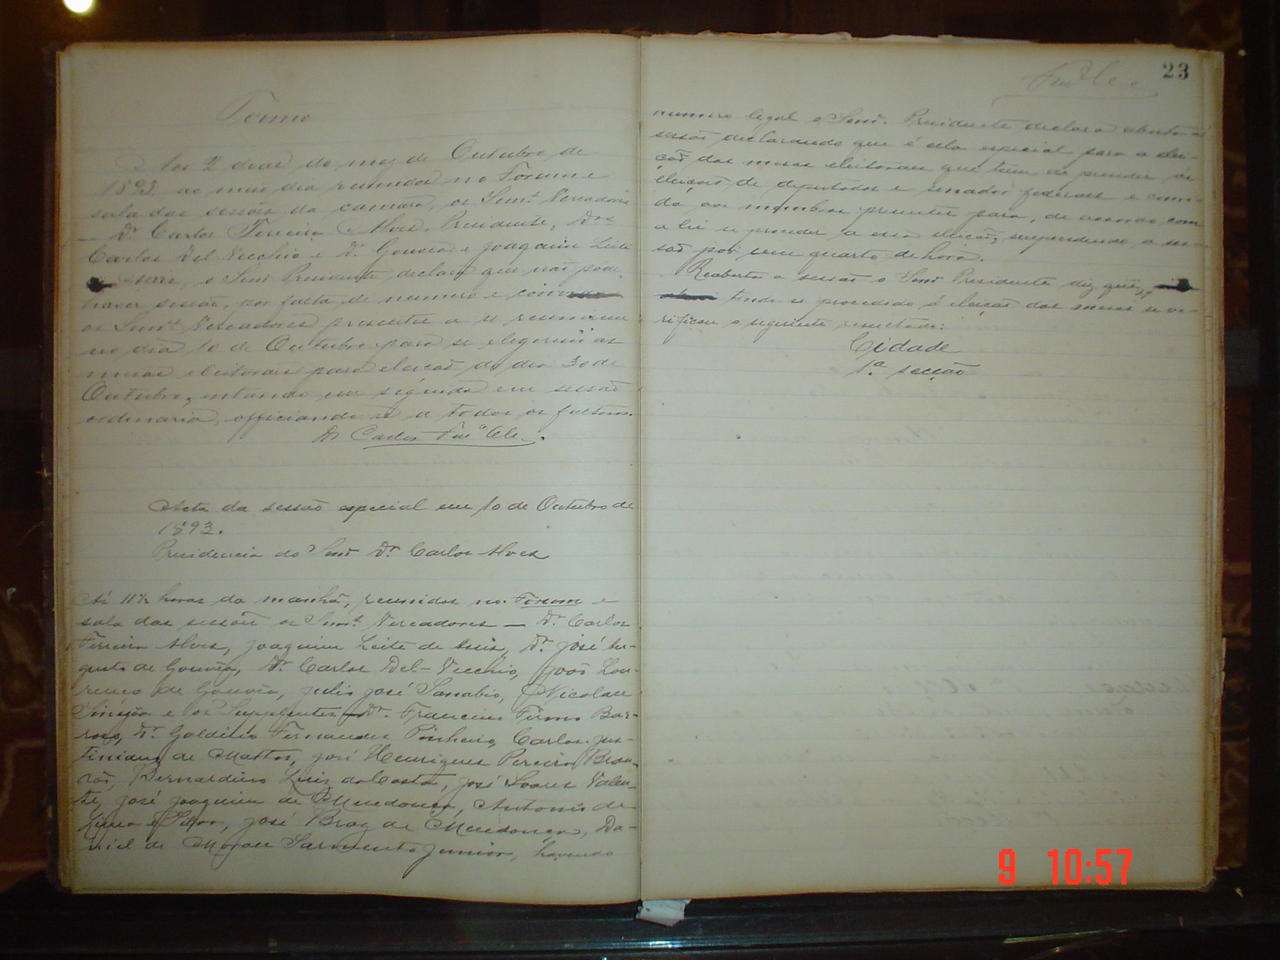 Termo
Aos 2 dias do mez de Outubro de
1893, ao meio dia reunidos no Forum e
sala das sessões da camara, os Senrs. Vereadores
— Dr. Carlos Ferreira Alves, Presidente, Drs
Carlos Del Vecchio e Dr. Gouvêa e Joaquim Leite
o Senr Presidente declara que não pode
haver sessão, por falta de numero e
os Senrs. Vereadores presentes a se reunirem
no dia 10 de Outubro para se elegerem as
mesas eleitoraes para eleição do dia 30 de
Outubro, entrando em seguida em sessão
ordinaria, officiando-se a todos os
Dr Carlos
Acta da sessão especial em 10 de Outubro de
1893.
Presidencia do Senr Dr Carlos Alves
horas da manhã, reunidos no Forum e
sala das sessões os Senrs. Vereadores — Dr. Carlos
Ferreira Alves, Joaquim Leite de Assis, Dr. José Au-
gusto de Gouvêa, Dr. Carlos Del-Vecchio, João Lou-
renço de Gouvêa, Julio José Sanabio, Nicolau
e os Supplentes — Dr. Francisco Firmo Bar-
roso, Dr. Galdino Fernandes Pinheiro, Carlos Jus-
tiniano de Mattos, José Henriques Pereira Bran-
dão, Bernardino Luiz da Costa, José Soares Valen-
te, José Joaquim de Mendonça, Antonio de
Lima e Silva, José Braz de Mendonça, Da-
niel de Moraes Sarmento Junior, havendo
23
numero legal o Senr. Presidente declara aberta a
sessão declarando que é ella especial para a elei-
ção das mesas eleitoraes que tem de presidir as
eleições de deputados e senador federaes e convi-
da aos membros presentes para, de accordo com
a lei se proceder a essa eleição, suspendendo a ses-
são por um quarto de hora.
Reaberta a sessão o Senr Presidente diz que,
tendo se procedido á eleição das mesas se ve-
rificou o seguinte resultado:
Cidade
1ª secção
9 10:57